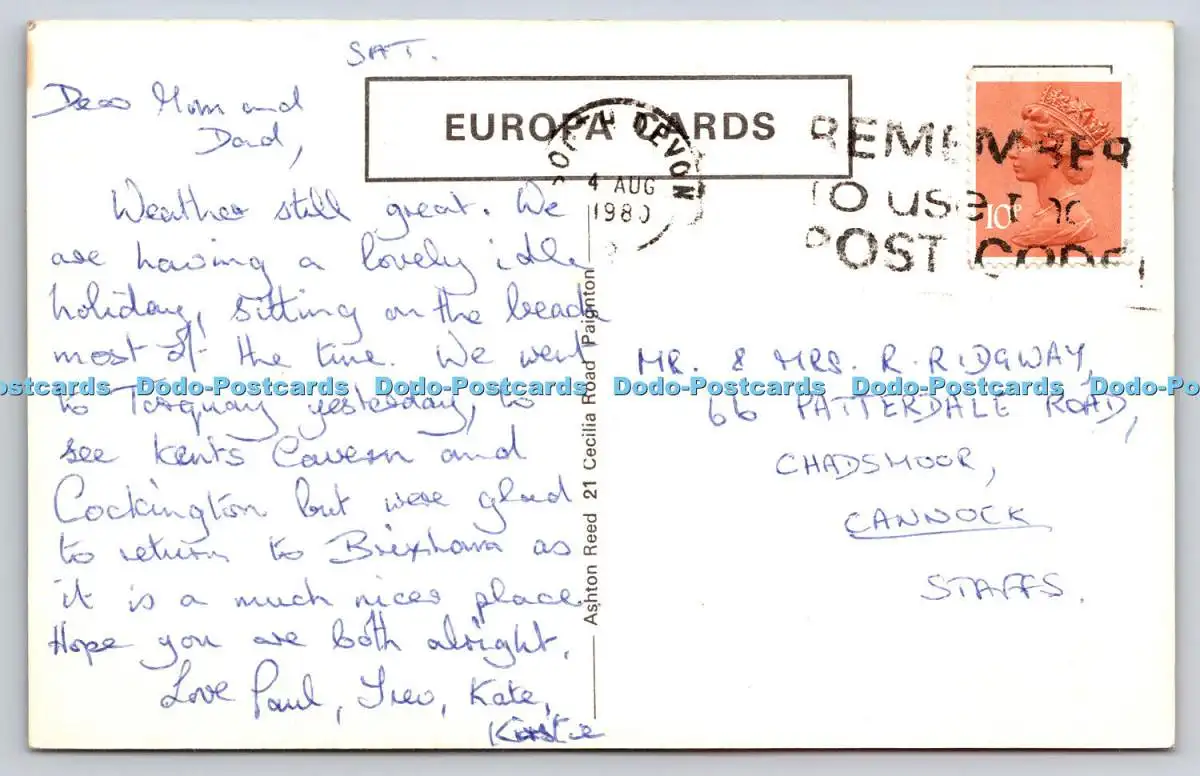 SAT.
Dear Mom and
Dad,
Weather still great. We
are having a lovely idle
holiday, sitting on the beach
most of the time. We went
to Torquay yesterday, to
see Kents Cavern and
Cockington but were glad
to return to Brixham as
it is a much nicer place.
Hope you are both alright.
Love Paul, Trev, Kate,
Kirstie
EUROPA CARDS
SOUTH DEVON
4 AUG
1980
REMEMBER
TO use THE
POST CODE
10P
Ashton Reed 21 Cecilia Road Paignton
MR. & MRS. R. RIDGWAY,
66 PATTERDALE ROAD,
CHADSMOOR,
CANNOCK
STAFFS.
Dodo-Postcards Dodo-Postcards Dodo-Postcards Dodo-Postcards Dodo-Postcards